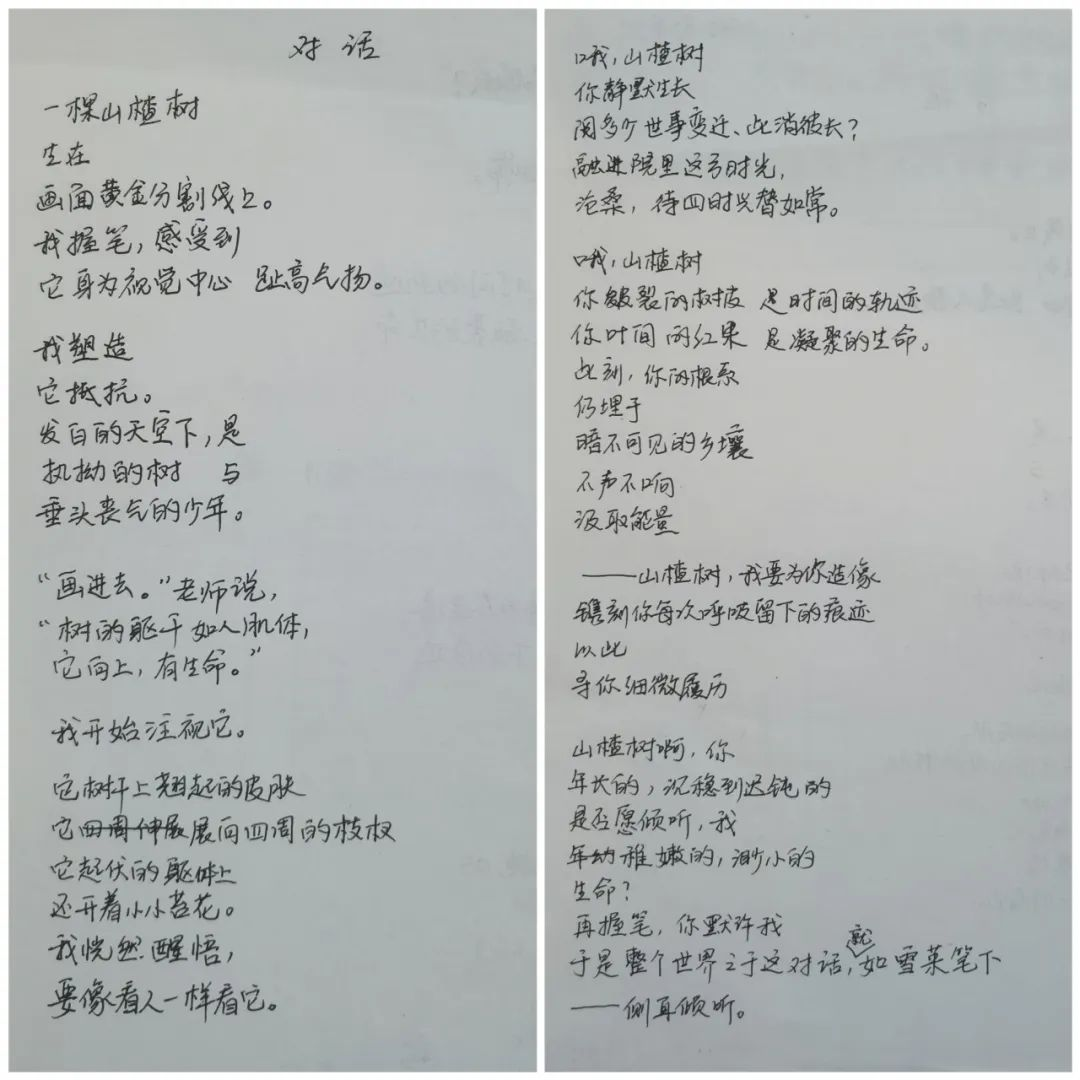 对 话
一棵山楂树
生在
画面黄金分割线上。
我握笔，感受到
它身为视觉中心 趾高气扬。
我塑造
它抵抗。
发白的天空下，是
执拗的树 与
垂头丧气的少年。
“画进去。”老师说，
“树的躯干如人肌体，
它向上，有生命。”
我开始注视它。
它树杆上翘起的皮肤
它四周伸展展向四周的枝杈
它起伏的躯体上
还开着小小苔花。
我恍然醒悟，
要像看人一样看它。
哦，山楂树
你静默生长
阅多少世事变迁、此消彼长？
融进院里这弯时光，
沧桑，待四时兴替如常。
哦，山楂树
你皲裂的树皮 是时间的轨迹
你叶间的红果 是凝聚的生命。
此刻，你的根系
仍埋于
暗不可见的乡壤
不声不响
汲取能量
——山楂树，我要为你造像
镌刻你每次呼吸留下的痕迹
以此
寻你细微履历
山楂树啊，你
年长的，沉稳到迟钝的
是否愿倾听，我
年幼稚嫩的，渺小的
生命？
再握笔，你默许我
于是整个世界之于这对话，就如雪莱笔下
——侧耳倾听。